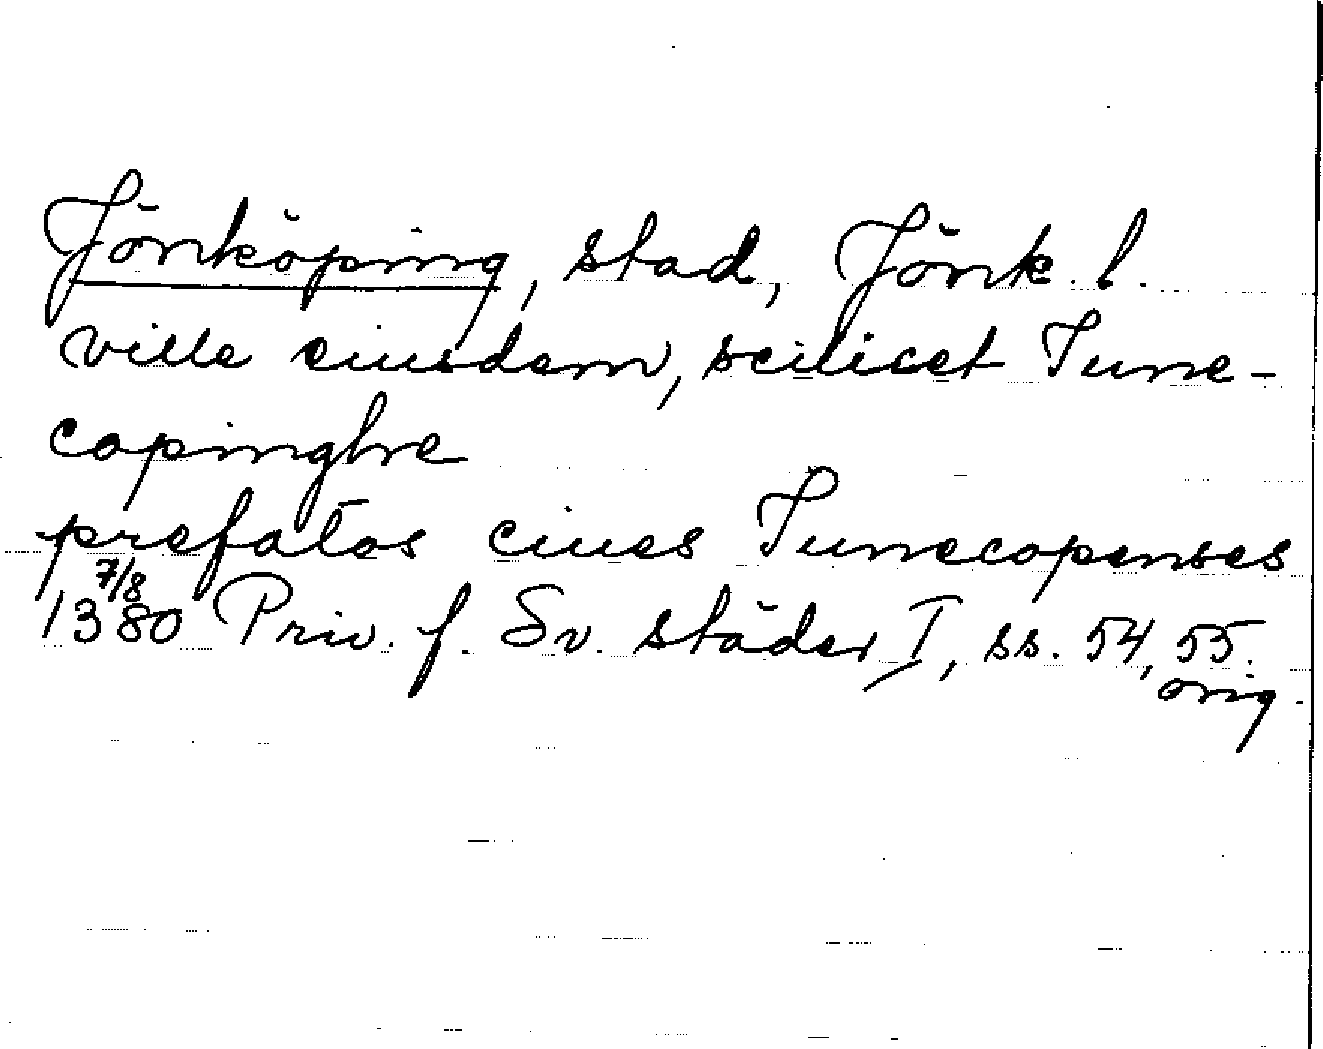 Jönköping, stad, Jönk. l.
ville eiusdem, scilicet Iune-
copinghe
prefatos ciues Iunecopenses
1380 7/8 Priv. f. Sv. städer I, ss. 54, 55.
orig.